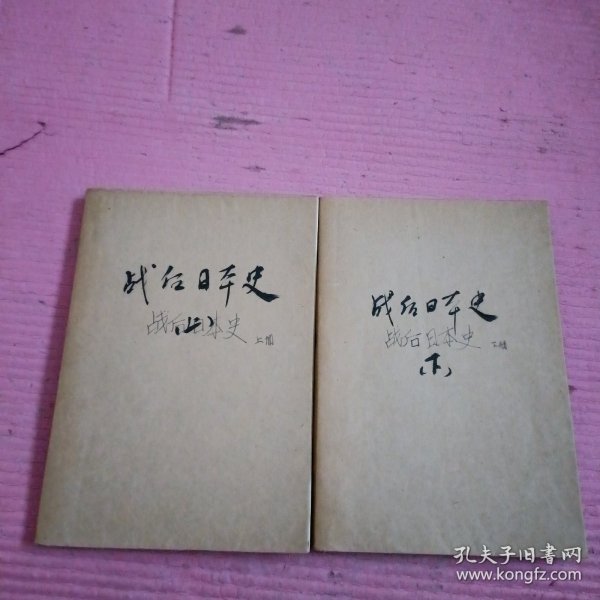 战后日本史
(上)
战后日本史 上册
战后日本史
战后日本史 下册
(下)
孔夫子旧书网
www.kongfz.com